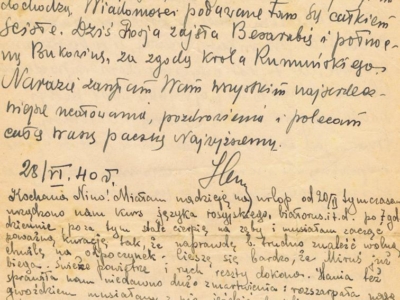 dochodzą. Wiadomości podawane tam są całkiem
ścisłe. Dziś Rosja zajęła Besarabię i półno-
cną Bukowinę, za zgodą króla Rumuńskiego.
Narazie zasyłam Wam wszystkim najserdecz-
niejsze ucałowania, pozdrowienia i polecam
całą waszą paczkę Najwyższemu.
28/VI. 40 r.
Kochana Nino! Miałam nadzieję na urlop od 20/VI tymczasem
urządzono nam kurs języka rosyjskiego, białorus. i t. d. po 4 godz
dziennie poza tym stale cierpię na zęby i musiałam zacząć
poważną kurację, tak, że naprawdę b. trudno znaleść wolną
chwilę na odpoczynek. Cieszę się bardzo, że Miruś
świeże powietrze i rych resztę dokona. Hania też
sprawiła nam niedawno dużo zmartwienia: rozszarpała
gwoździem musiałam